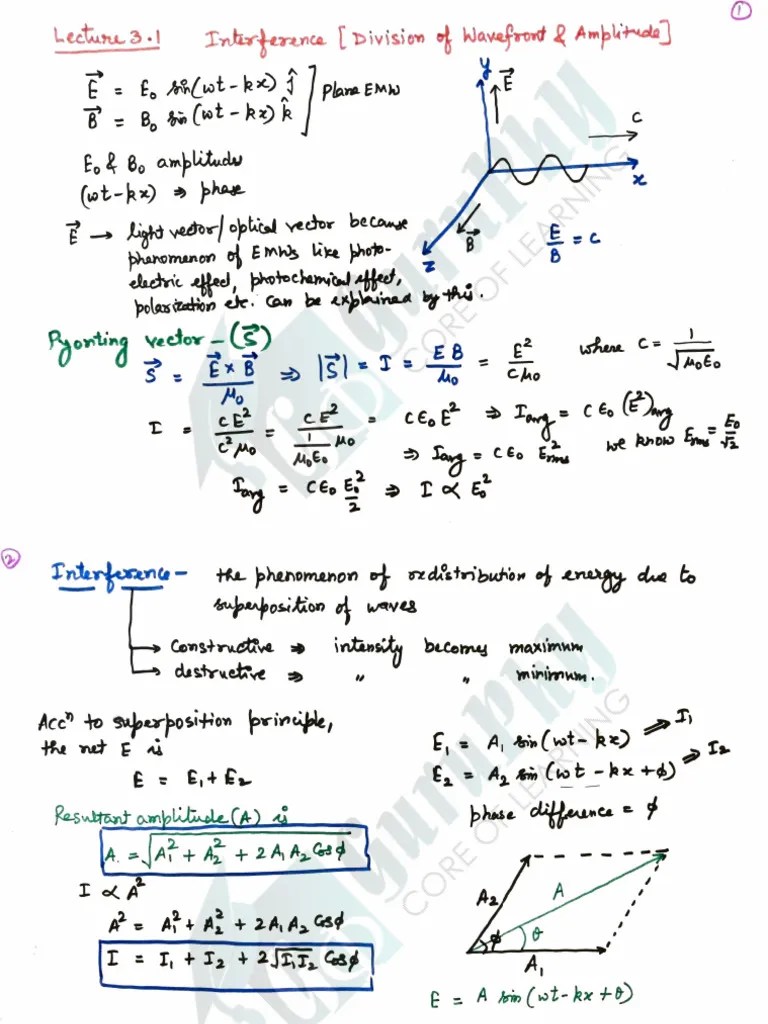 ①
Lecture 3.1 Interference [Division of Wavefront & Amplitude]
E⃗ = E₀ sin(ωt - kx) ĵ
B⃗ = B₀ sin(ωt - kx) k̂ ] Plane EMW
y
E⃗
c
x
B⃗
z
E/B = c
E₀ & B₀ amplitudes
(ωt - kx) ⇒ phase
E⃗ → light vector/optical vector because
phenomenon of EMWs like photo-
electric effect, photochemical effect,
polarization etc. can be explained by this.
Pyonting vector - (S⃗)
S⃗ = E⃗ × B⃗/μ₀ ⇒ |S⃗| = I = EB/μ₀ = E²/cμ₀ where c = 1/√μ₀ε₀
I = cE²/c²μ₀ = cE²/(1/μ₀ε₀)μ₀ = cε₀E² ⇒ Iavg = cε₀(E²)avg
⇒ Iavg = cε₀ E²rms we know Erms = E₀/√2
Iavg = cε₀ E₀²/2 ⇒ I ∝ E₀²
②
Interference - the phenomenon of redistribution of energy due to
superposition of waves
→ Constructive ⇒ intensity becomes maximum
→ destructive ⇒ " " minimum.
Accⁿ to superposition principle,
the net E is
E = E₁ + E₂
E₁ = A₁ sin(ωt - kx) ⇒ I₁
E₂ = A₂ sin(ωt - kx + ϕ) ⇒ I₂
phase difference = ϕ
Resultant amplitude (A) is
A = √A₁² + A₂² + 2A₁A₂ Cosϕ
I ∝ A²
A² = A₁² + A₂² + 2A₁A₂ Cosϕ
I = I₁ + I₂ + 2√I₁I₂ Cosϕ
A₂
A
ϕ
θ
A₁
E = A sin(ωt - kx + θ)
Guruphy
CORE OF LEARNING
Guruphy
CORE OF LEARNING